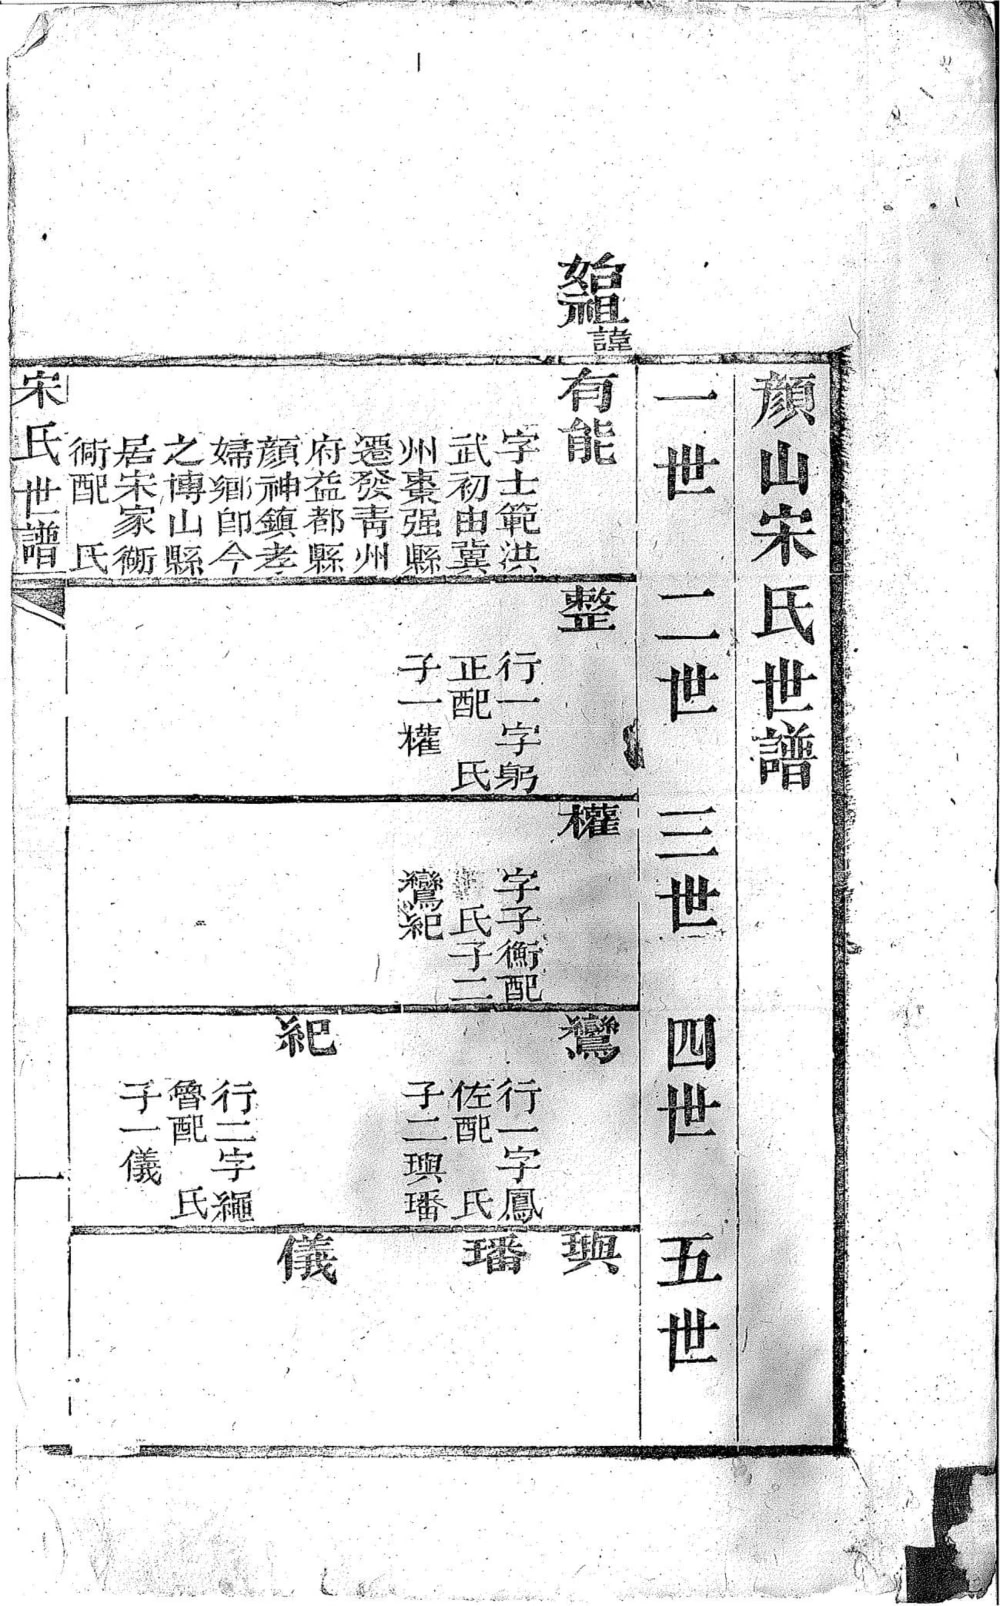 顏山宋氏世譜
一世 二世 三世 四世 五世
始祖諱
有能
字士範洪
武初由冀
州棗强縣
遷發青州
府益都縣
顏神鎮孝
婦鄉卽今
之博山縣
居宋家衚
衕配 氏
整
行一字躬
正配 氏
子一權
權
字子衡配
氏子二
鸞紀
鸞
行一字鳳
佐配 氏
子二璵璠
紀
行二字繩
魯配 氏
子一儀
璵
璠
儀
宋氏世譜